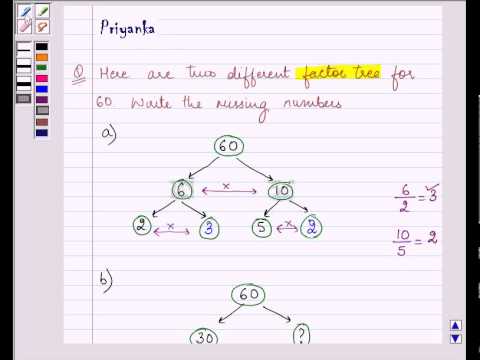 Priyanka
Q Here are two different factor tree for
60 Write the missing numbers
a)
60
6 x 10
2 x 3 5 x 2
6/2 = 3
10/5 = 2
b)
60
30 ?